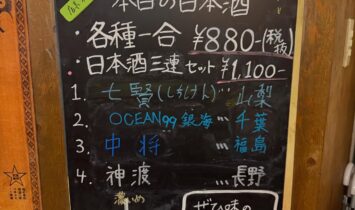 本日の日本酒
・各種一合 ¥880-(税抜)
・日本酒三連セット ¥1,100-
1. 七賢(しちけん)… 山梨
2. OCEAN99 銀海 … 千葉
3. 中将 … 福島
4. 神渡 … 長野
濃いめ
ぜひ味の